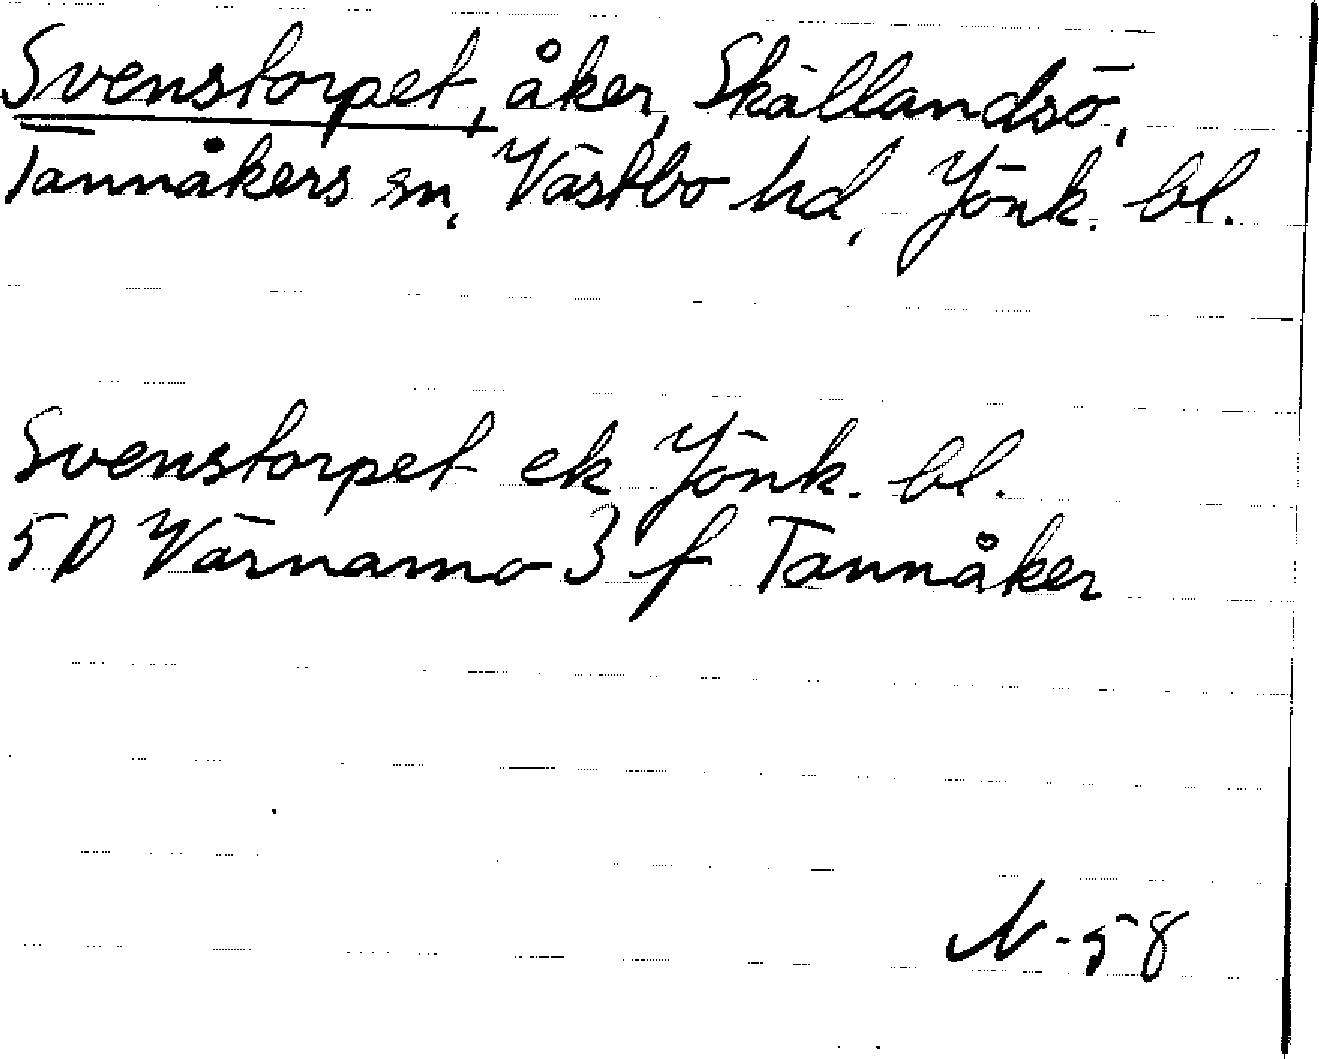 Svenstorpet, åker, Skällandsö,
Tannåkers sn, Västbo hd, Jönk. bl.
Svenstorpet ek Jönk. bl.
5D Värnamo 3 f Tannåker
N-58